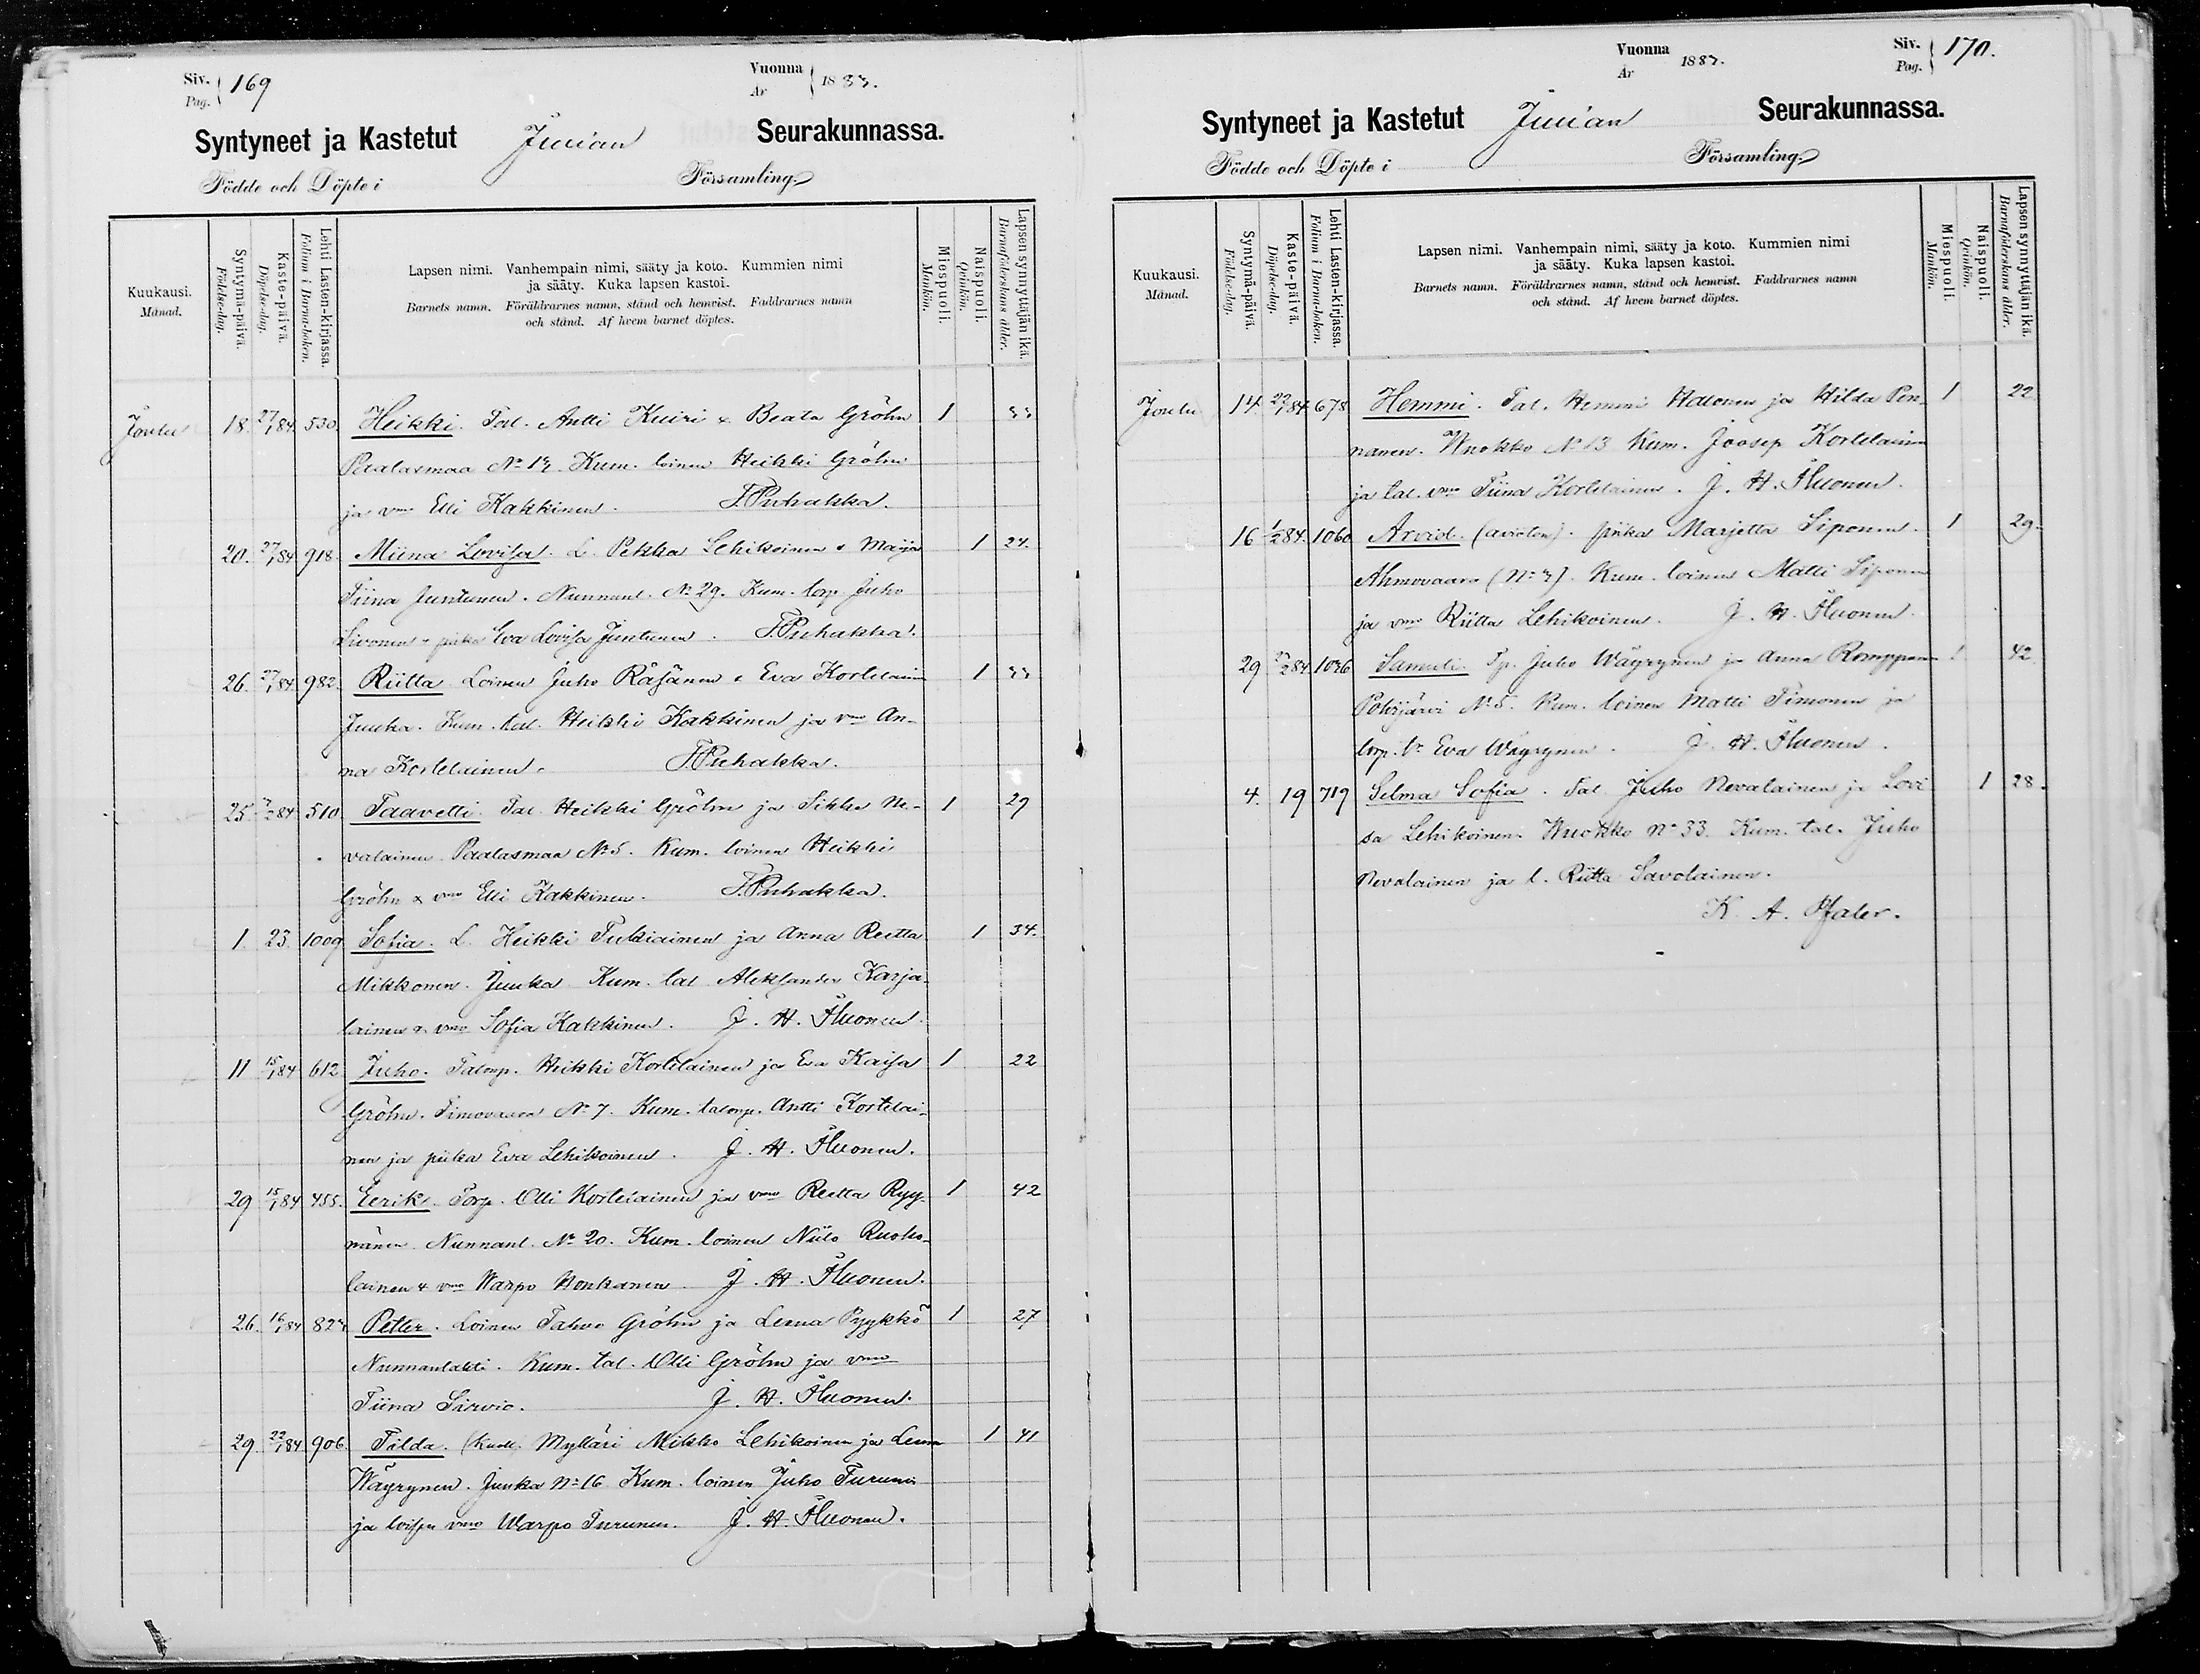 Siv. Pag. 169
Vuonna År 1883.
Syntyneet ja Kastetut Juuan Seurakunnassa.
Födde och Döpte i Församling.
Kuukausi. Månad.
Syntymä-päivä. Födelse-dag.
Kaste-päivä. Döpelse-dag.
Lehti Lasten-kirjassa. Folium i Barna-boken.
Lapsen nimi. Vanhempain nimi, sääty ja koto. Kummien nimi
ja sääty. Kuka lapsen kastoi.
Barnets namn. Föräldrarnes namn, stånd och hemvist. Faddrarnes namn
och stånd. Af hvem barnet döptes.
Miespuoli. Mankön.
Naispuoli. Qvinkön.
Lapsensynnyttäjän ikä. Barnaföderskans ålder.
Joulu 18. 27/1 84 530. Heikki. Tal. Antti Kuiri & Beata Gröhn 1 33
Paalasmaa No 12 Kum. loinen Heikki Gröhn
ja vmo Elli Kakkinen. T. Puhakka.
20. 27/1 84 918. Miina Lovisa. L. Pekka Lehikoinen & Maija 1 24.
Tiina Juntunen. Nunnanl. No 29. Kum. torp. Juho
Sivonen & piika Eva Lovisa Juntunen. T. Puhakka.
26. 27/1 84 982. Riitta Loinen Juho Räsänen & Eva Kortelainen 1 33
Juuka. Kum. tal. Heikki Kakkinen ja vmo An-
na Kortelainen. T. Puhakka.
25. 2/2 84 510. Taavetti Tal. Heikki Gröhn ja Sikke Ne- 1 29
valainen Paalasmaa No 5. Kum. loinen Heikki
Gröhn & vmo Elli Kakkinen. T. Puhakka.
1. 23. 1009 Sofia. L. Heikki Tukiainen ja Anna Reetta 1 34.
Mikkonen. Juuka Kum. tal Aleksander Karja-
lainen & vmo Sofia Kakkinen. J. H. Fluonen.
11 15/1 84 612 Juho. Talonp. Heikki Kortelainen ja Eva Kaisa 1 22
Gröhn. Timovaara No 7. Kum. talonp. Antti Kortelai-
nen ja piika Eva Lehikoinen. J. H. Fluonen.
29 15/1 84 455. Eerik. Torp. Olli Kortelainen ja vmo Reetta Ryy- 1 42
nänen Nunnanl. No 20. Kum. loinen Niilo Ruoko-
lainen & vmo Warpo Honkanen J. H. Fluonen.
26. 16/1 84 823 Petter. Loinen Tahvo Gröhn ja Leena Pyykkö 1 27
Nunnanlahti. Kum. tal. Olli Gröhn ja vmo
Tiina Sirvio. J. H. Fluonen.
29. 22/1 84 906. Tilda. (Kuoll. Mylläri Mikko Lehikoinen ja Leena 1 41
Wäyrynen. Juuka No 16 Kum. loinen Juho Turunen
ja loisen vmo Warpo Turunen. J. H. Fluonen.
Siv. Pag. 170.
Vuonna År 1883.
Syntyneet ja Kastetut Juuan Seurakunnassa.
Födde och Döpte i Församling.
Kuukausi. Månad.
Syntymä-päivä. Födelse-dag.
Kaste-päivä. Döpelse-dag.
Lehti Lasten-kirjassa. Folium i Barna-boken.
Lapsen nimi. Vanhempain nimi, sääty ja koto. Kummien nimi
ja sääty. Kuka lapsen kastoi.
Barnets namn. Föräldrarnes namn, stånd och hemvist. Faddrarnes namn
och stånd. Af hvem barnet döptes.
Miespuoli. Mankön.
Naispuoli. Qvinkön.
Lapsen synnyttäjän ikä. Barnaföderskans ålder.
Joulu 14. 22/1 84 678 Hemmi. Tal. Hemmi Halonen ja Hilda Pen- 1 22
nanen. Wuokko No 13 Kum. Joosep Kortelainen
ja tal. vmo Tiina Kortelainen. J. H. Fluonen.
16 1/2 84. 1060 Arvid. (avioton). piika Marjetta Siponen. 1 29.
Ahmovaara (No 3). Kum. loinen Matti Siponen
ja vmo Riitta Lehikoinen. J. H. Fluonen.
29 2/2 84. 1036 Samuli. Tp. Juho Wäyrynen ja Anna Romppanen 1 42
Polvijärvi No 5. Kum. loinen Matti Timonen ja
torp. vr Eva Wäyrynen. J. H. Fluonen.
4. 19 719 Selma Sofia. Tal. Juho Nevalainen ja Lovi 1 28.
sa Lehikoinen. Wuokko No 33. Kum. tal. Juho
Nevalainen ja l. Riitta Savolainen.
K. A. Pfaler.